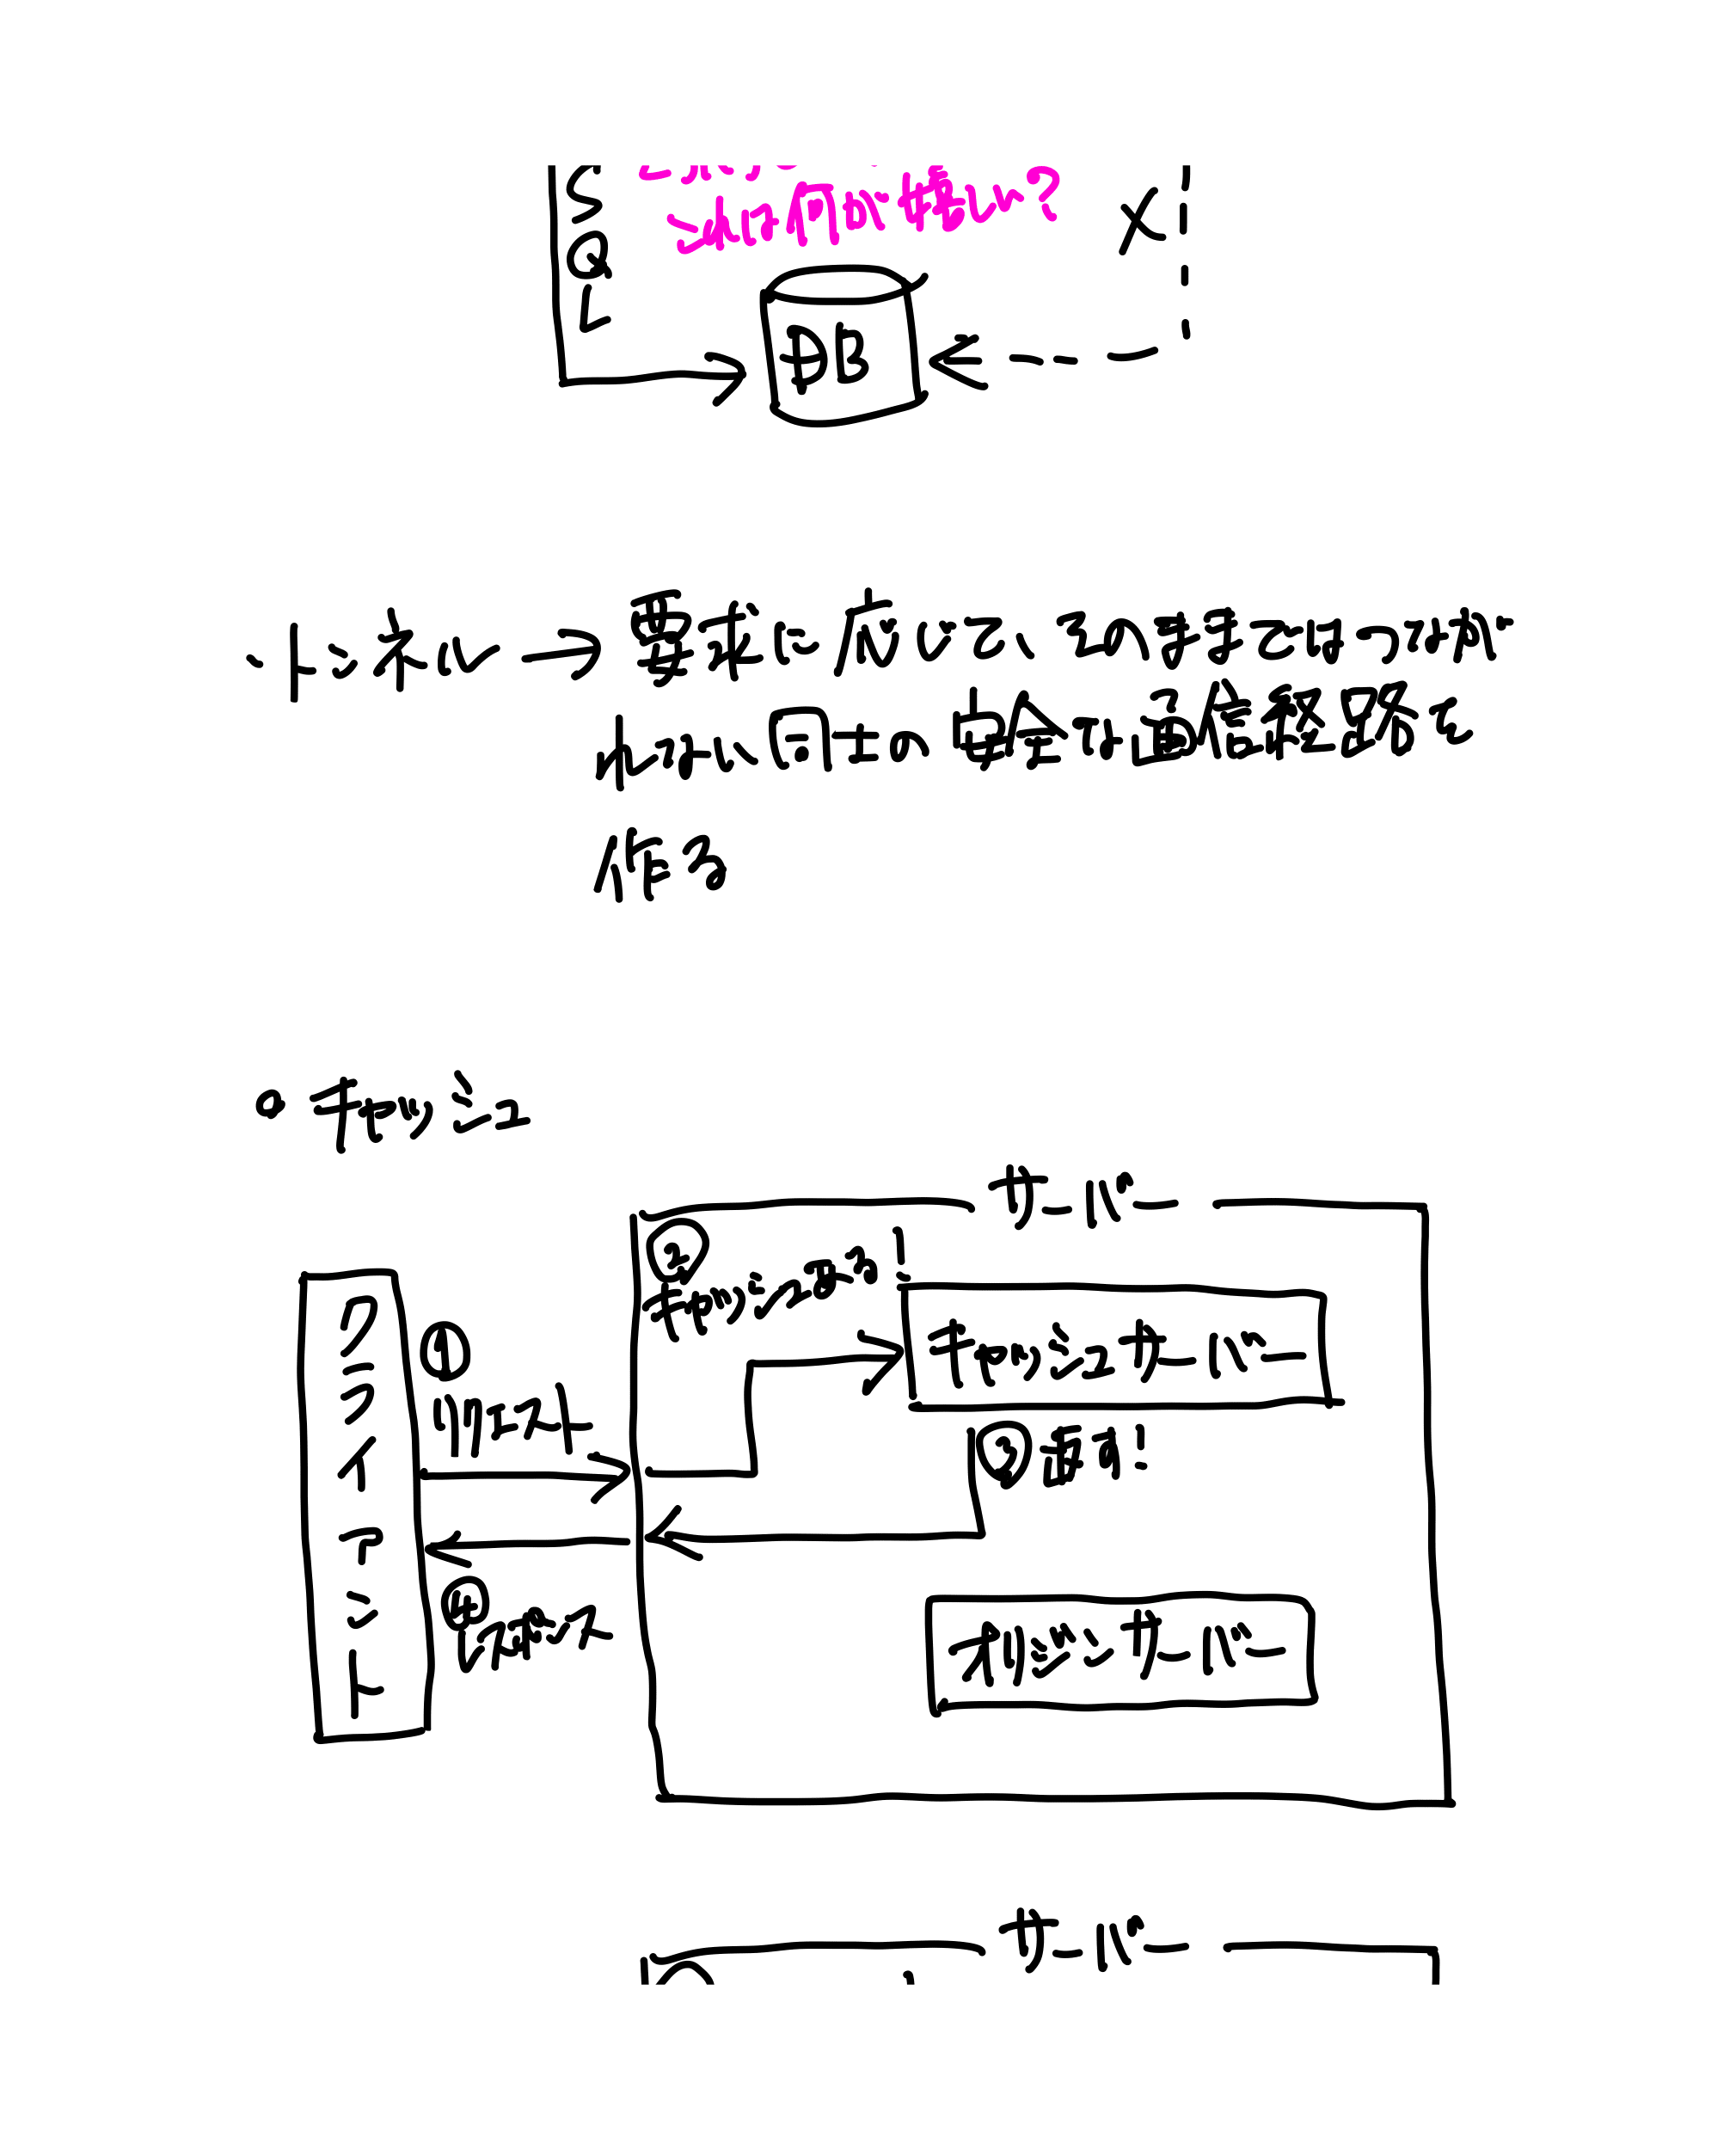 SQL
→は何が怖い?
X
DB
・トンネル→要求に応じて、そのままではつなが
れない同士の安全な通信経路を
作る
○キャッシュ
サーバー
②
キャッシュある!
キャッシュサーバー
クライアント
①
リクエスト
③ 届け!
④
レスポンス
オリジンサーバー
サーバー